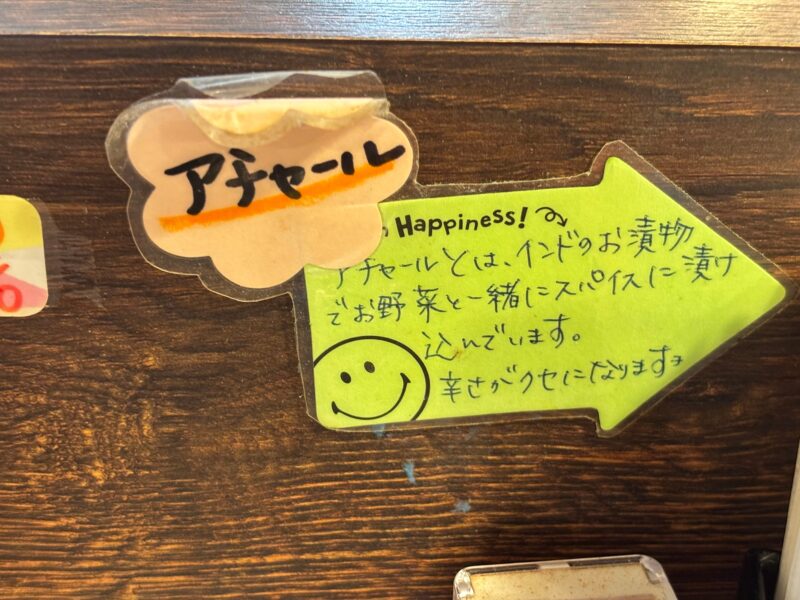 アチャール
Happiness!
アチャールとは、インドのお漬物
でお野菜と一緒にスパイスに漬け
込んでいます。
辛さがクセになりますョ
%